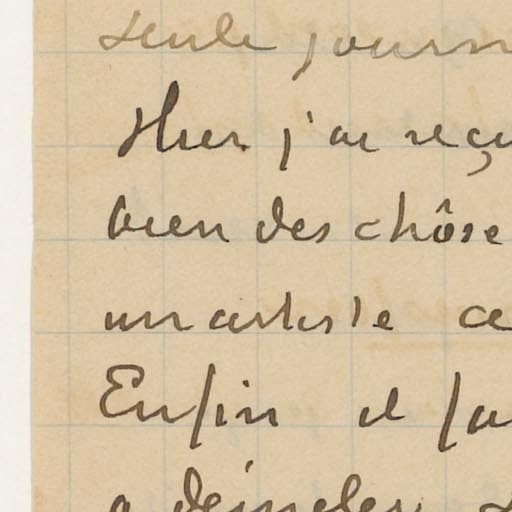 seule journ
Hier j'ai reçu
bien des chôse
un artiste ce
Enfin il fa
a démêler